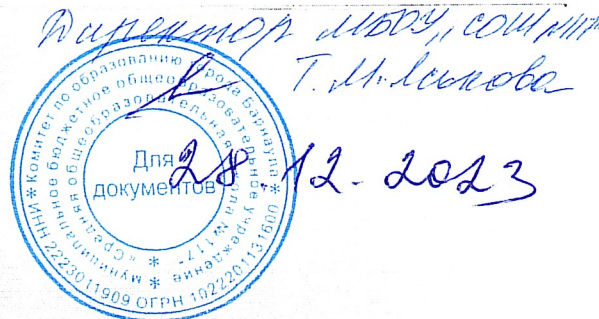 Директор МБОУ „СОШ №117
Т.М.
* Комитет по образованию города Барнаула *
ИНН 2223011909 ОГРН 1022201131600
Муниципальное бюджетное общеобразовательное учреждение *
«Средняя общеобразовательная школа №117»
Для
документов
28.12.2023